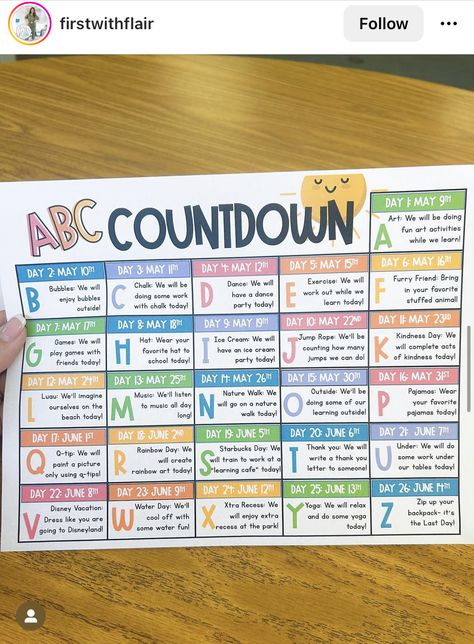 firstwithflair
Follow
ABC COUNTDOWN
DAY 1: MAY 9TH
A
Art: We will be doing
fun art activities
while we learn!
DAY 2: MAY 10TH
B
Bubbles: We will
enjoy bubbles
outside!
DAY 3: MAY 11TH
C
Chalk: We will be
doing some work
with chalk today!
DAY 4: MAY 12TH
D
Dance: We will
have a dance
party today!
DAY 5: MAY 15TH
E
Exercise: We will
work out while we
learn today!
DAY 6: MAY 16TH
F
Furry Friend: Bring
in your favorite
stuffed animal!
DAY 7: MAY 17TH
G
Games: We will
play games with
friends today!
DAY 8: MAY 18TH
H
Hat: Wear your
favorite hat to
school today!
DAY 9: MAY 19TH
I
Ice Cream: We will
have an ice cream
party today!
DAY 10: MAY 22ND
J
Jump Rope: We'll be
counting how many
jumps we can do!
DAY 11: MAY 23RD
K
Kindness Day: We
will complete acts
of kindness today!
DAY 12: MAY 24TH
L
Luau: We'll imagine
ourselves on the
beach today!
DAY 13: MAY 25TH
M
Music: We'll listen
to music all day
long!
DAY 14: MAY 26TH
N
Nature Walk: We
will go on a nature
walk today!
DAY 15: MAY 30TH
O
Outside: We'll be
doing some of our
learning outside!
DAY 16: MAY 31ST
P
Pajamas: Wear
your favorite
pajamas today!
DAY 17: JUNE 1ST
Q
Q-tip: We will
paint a picture
only using q-tips!
DAY 18: JUNE 2ND
R
Rainbow Day: We
will create
rainbow art today!
DAY 19: JUNE 5TH
S
Starbucks Day: We
will work at a
"learning cafe" today!
DAY 20: JUNE 6TH
T
Thank you: We will
write a thank you
letter to someone!
DAY 21: JUNE 7TH
U
Under: We will do
some work under
our tables today!
DAY 22: JUNE 8TH
V
Disney Vacation:
Dress like you are
going to Disneyland!
DAY 23: JUNE 9TH
W
Water Day: We'll
cool off with
some water fun!
DAY 24: JUNE 12TH
X
Xtra Recess: We
will enjoy extra
recess at the park!
DAY 25: JUNE 13TH
Y
Yoga: We will relax
and do some yoga
today!
DAY 26: JUNE 14TH
Z
Zip up your
backpack- it's
the Last Day!